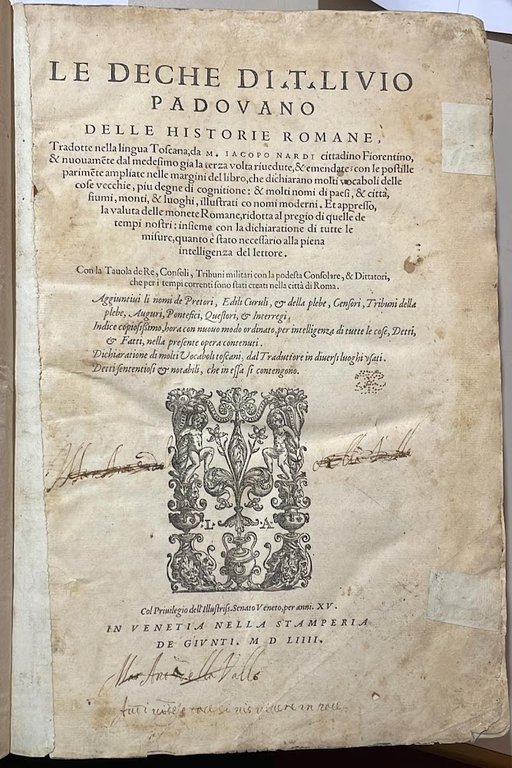 LE DECHE DI .T. LIVIO
PADOVANO
DELLE HISTORIE ROMANE,
Tradotte nella lingua Toscana, da M. IACOPO NARDI cittadino Fiorentino,
& nuouamẽte dal medesimo gia la terza volta riuedute, & emendate: con le postille
parimẽte ampliate nelle margini del libro, che dichiarano molti vocaboli delle
cose vecchie, piu degne di cognitione: & molti nomi di paesi, & città,
fiumi, monti, & luoghi, illustrati co nomi moderni. Et appresso,
la valuta delle monete Romane, ridotta al pregio di quelle de
tempi nostri: insieme con la dichiaratione di tutte le
misure, quanto è stato necessario alla piena
intelligenza del lettore.
Con la Tauola de Re, Consoli, Tribuni militari con la podesta Consolare, & Dittatori,
che per i tempi correnti sono stati creati nella città di Roma.
Aggiuntiui li nomi de Pretori, Edili Curuli, & della plebe, Censori, Tribuni della
plebe, Auguri, Pontefici, Questori, & Interregi,
Indice copiosissimo, hora con nuouo modo ordinato, per intelligenza di tutte le cose, Detti,
& Fatti, nella presente opera contenuti.
Dichiaratione di molti Vocaboli toscani, dal Traduttore in diuersi luoghi vsati.
Detti sententiosi & notabili, che in essa si contengono.
L A
Col Priuilegio dell'Illustriss. Senato Veneto, per anni. XV.
IN VENETIA NELLA STAMPERIA
DE GIVNTI. M D LIIII.